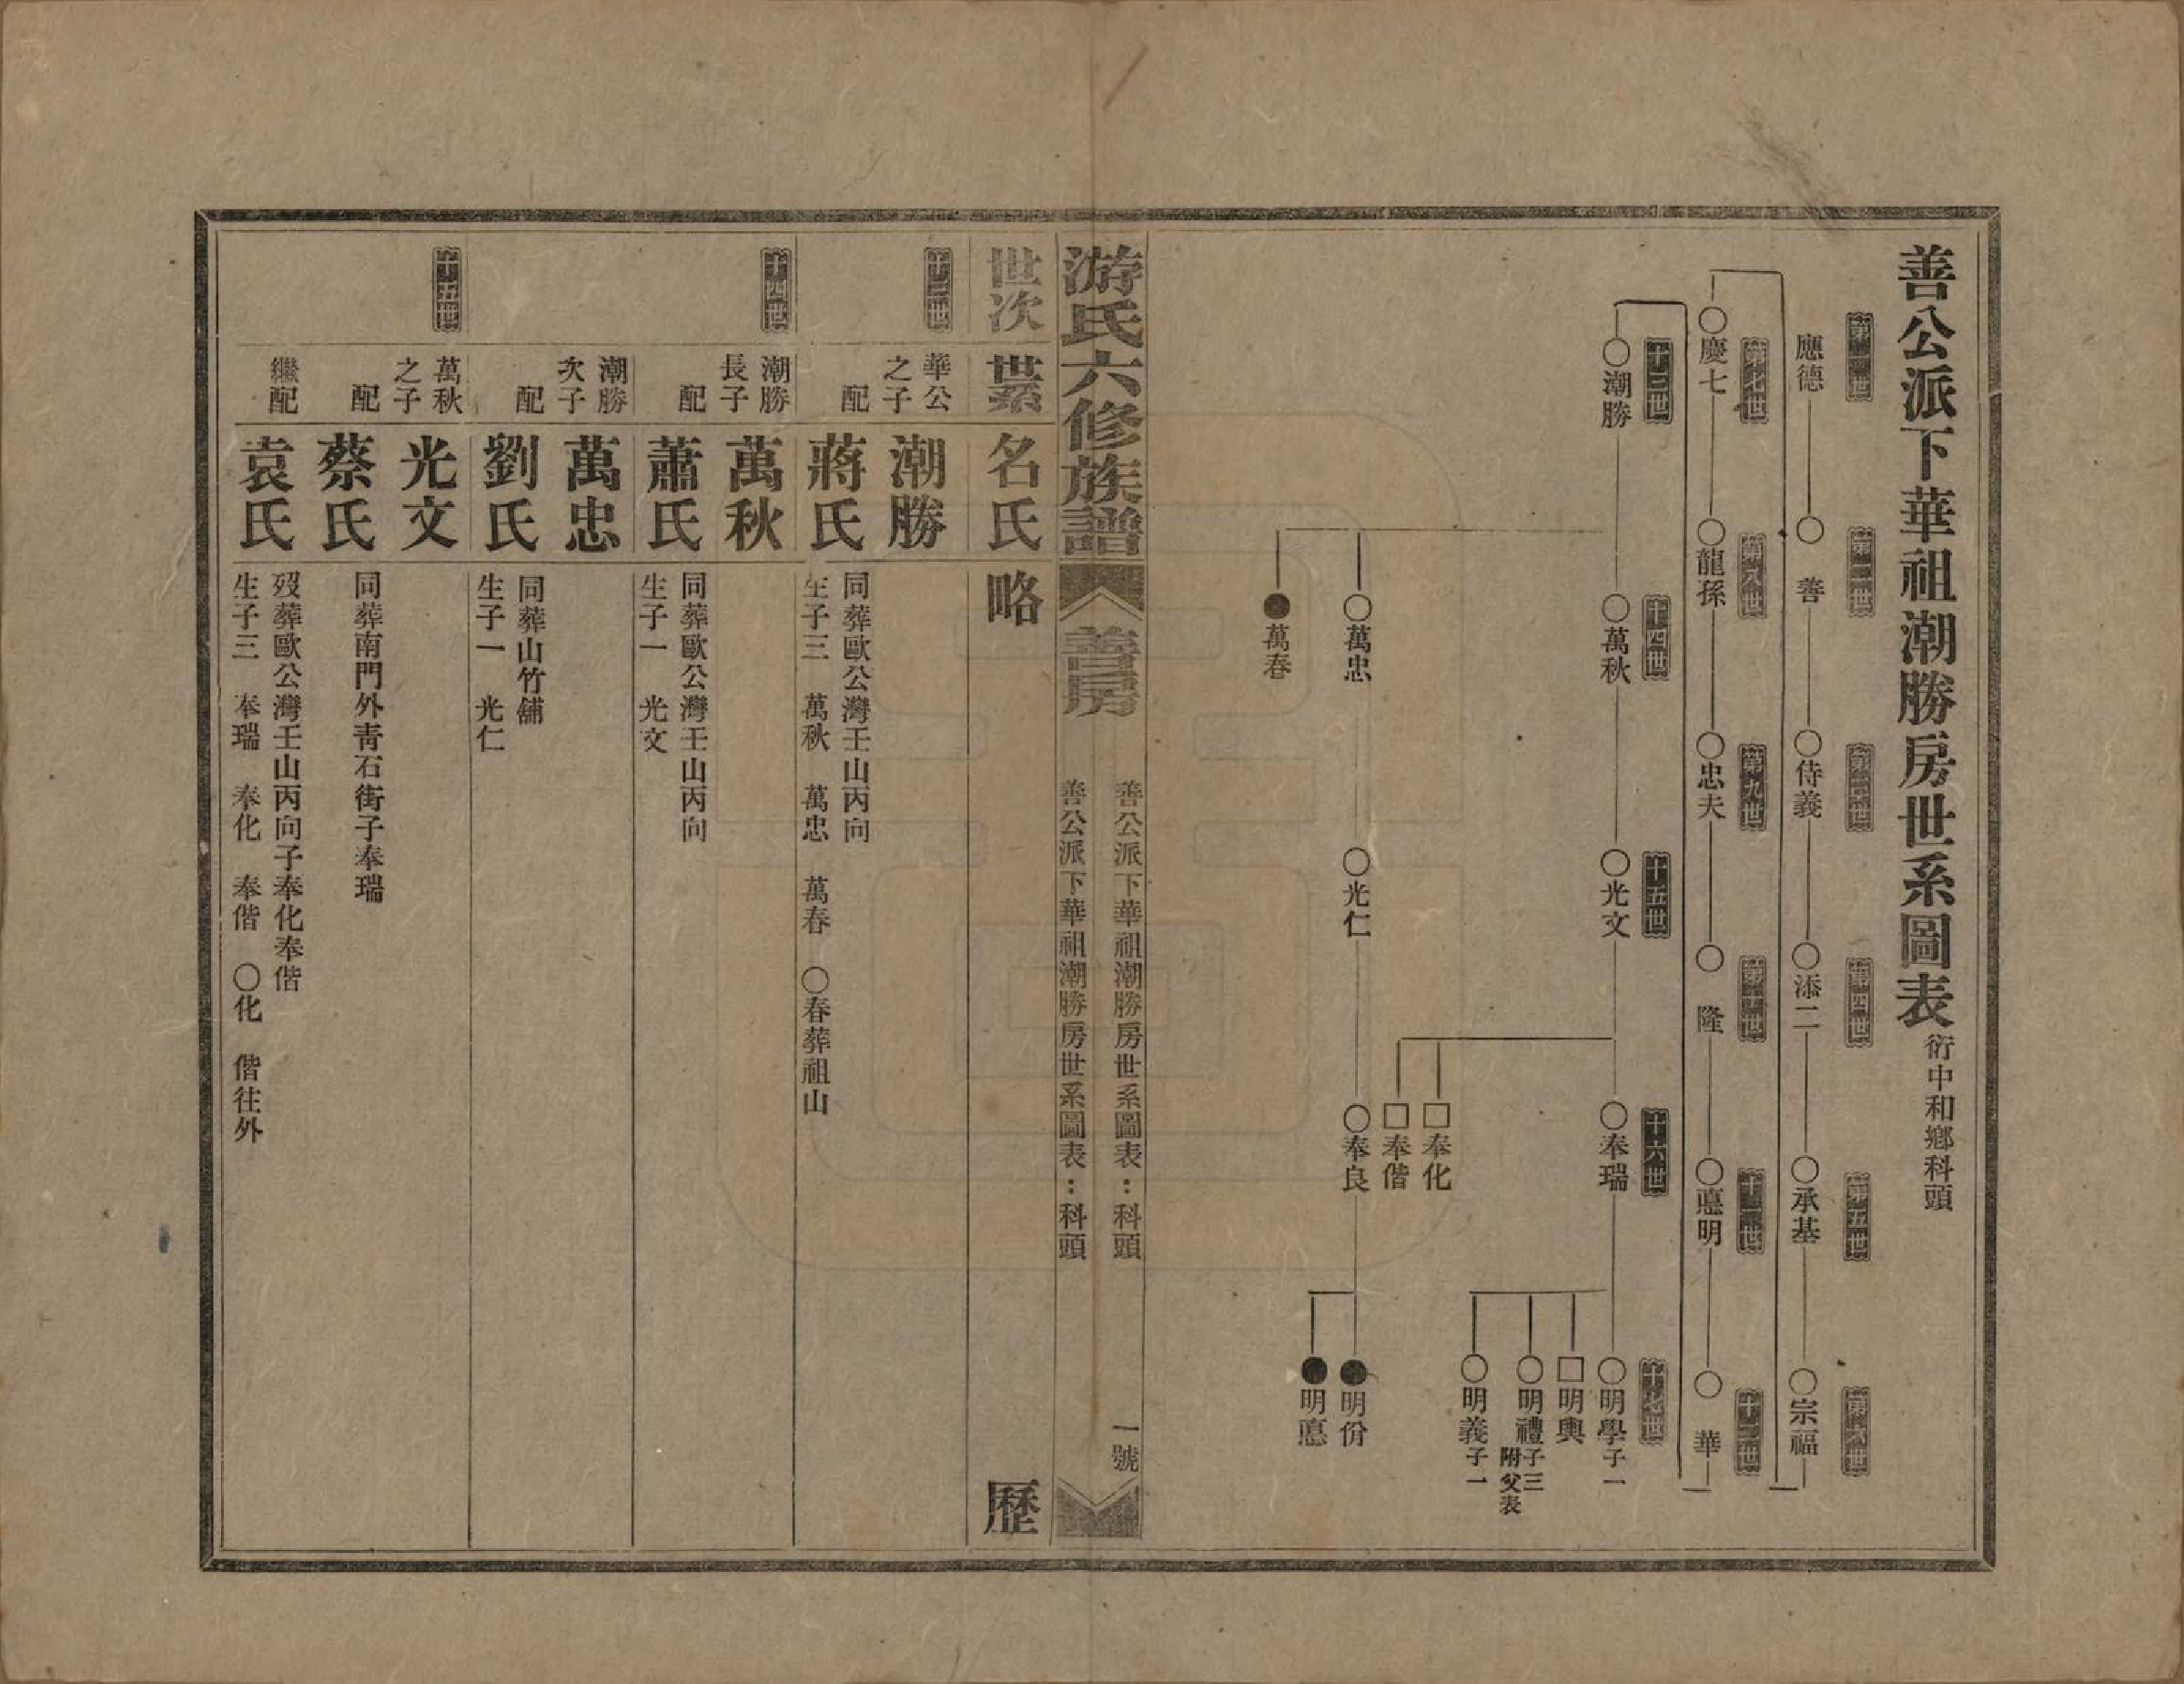 善公派下華祖潮勝房世系圖表 衍中和鄉科頭
第一世 第二世 第三世 第四世 第五世 第六世
應德 ○善 ○侍義 ○添二 ○承基 ○宗福
第七世 第八世 第九世 第十世 十一世 十二世
○慶七 ○龍孫 ○忠夫 ○隆 ○悳明 ○華
十三世 十四世 十五世 十六世 十七世
○潮勝 ○萬秋 ○光文 ○奉瑞 ○明學 子一
□明輿
○明禮 子三 附父表
○明義 子一
□奉化
□奉偕
○萬忠 ○光仁 ○奉良 ●明份
●明悳
●萬春
游氏六修族譜 善房
善公派下華祖潮勝房世系圖表：科頭 一號
善公派下華祖潮勝房世系圖表：科頭
世次 世系 名氏 略 歷
十三世 華公之子 潮勝
配 蔣氏
同葬歐公灣壬山丙向
生子三 萬秋 萬忠 萬春 ○春葬祖山
十四世 潮勝長子 萬秋
配 蕭氏
同葬歐公灣壬山丙向
生子一 光文
潮勝次子 萬忠
配 劉氏
同葬山竹舖
生子一 光仁
十五世 萬秋之子 光文
配 蔡氏
同葬南門外青石街子奉瑞
繼配 袁氏
歿葬歐公灣壬山丙向子奉化奉偕
生子三 奉瑞 奉化 奉偕 ○化 偕往外